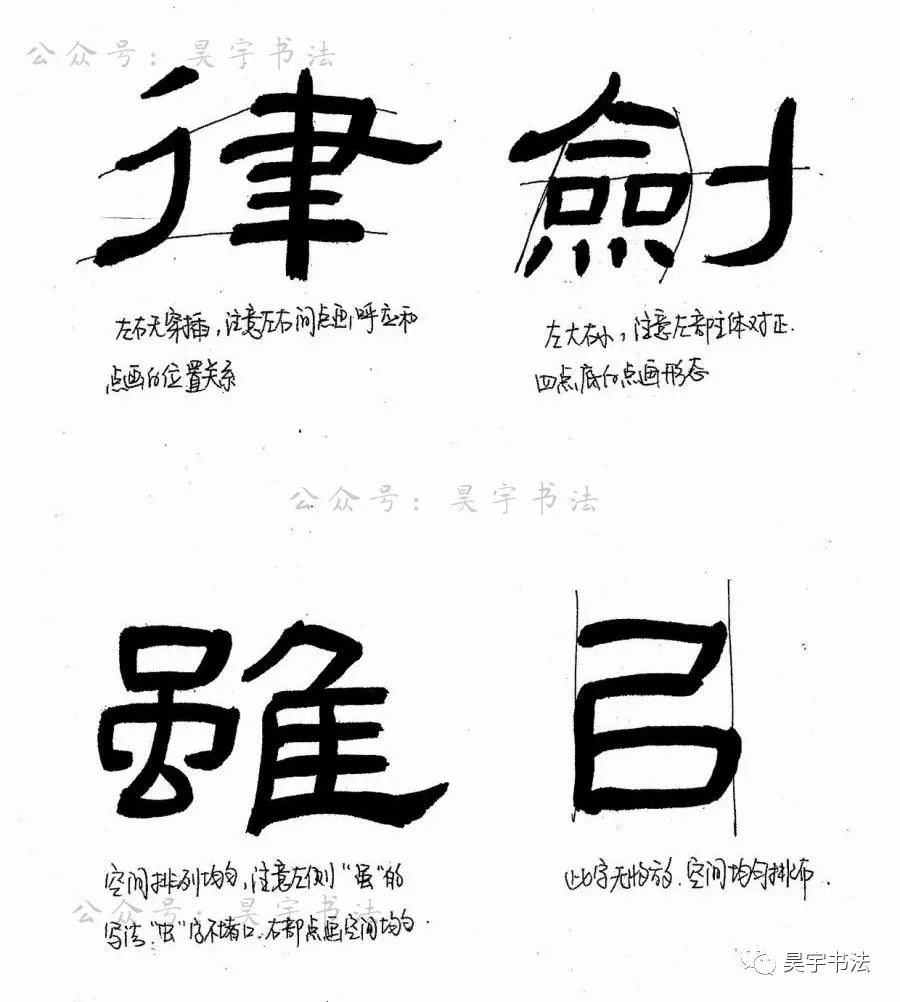 公众号：昊宇书法
律 劍
左右无穿插，注意左右间点画呼应和
点画的位置关系
左大右小，注意左部主体对正.
四点底的点画形态
公众号：昊宇书法
雖
空间排列均匀，注意左侧“虽”的
写法“虫”字不堵口.右部点画空间均匀.
此字无收放.空间均匀排布.
公众号：昊宇书法
昊宇书法